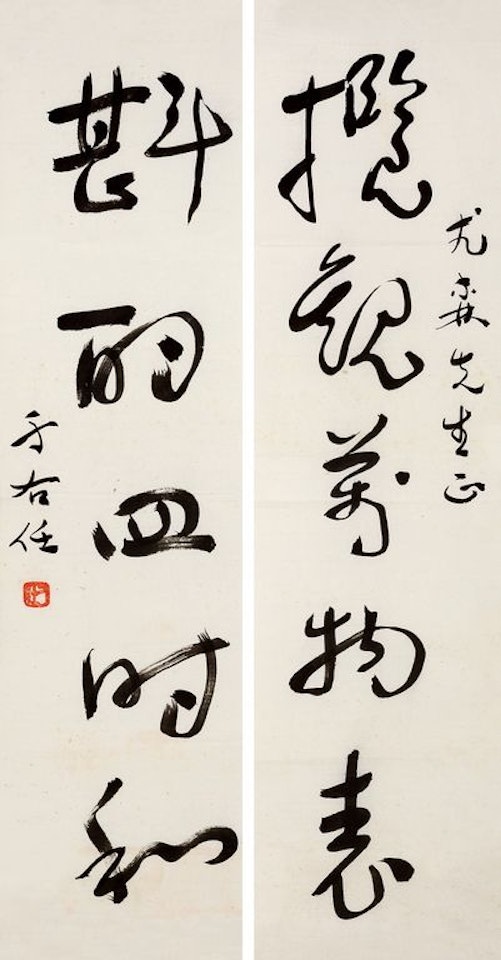 尤森先生正
攬觀萬物表
斟酌四時和
于右任